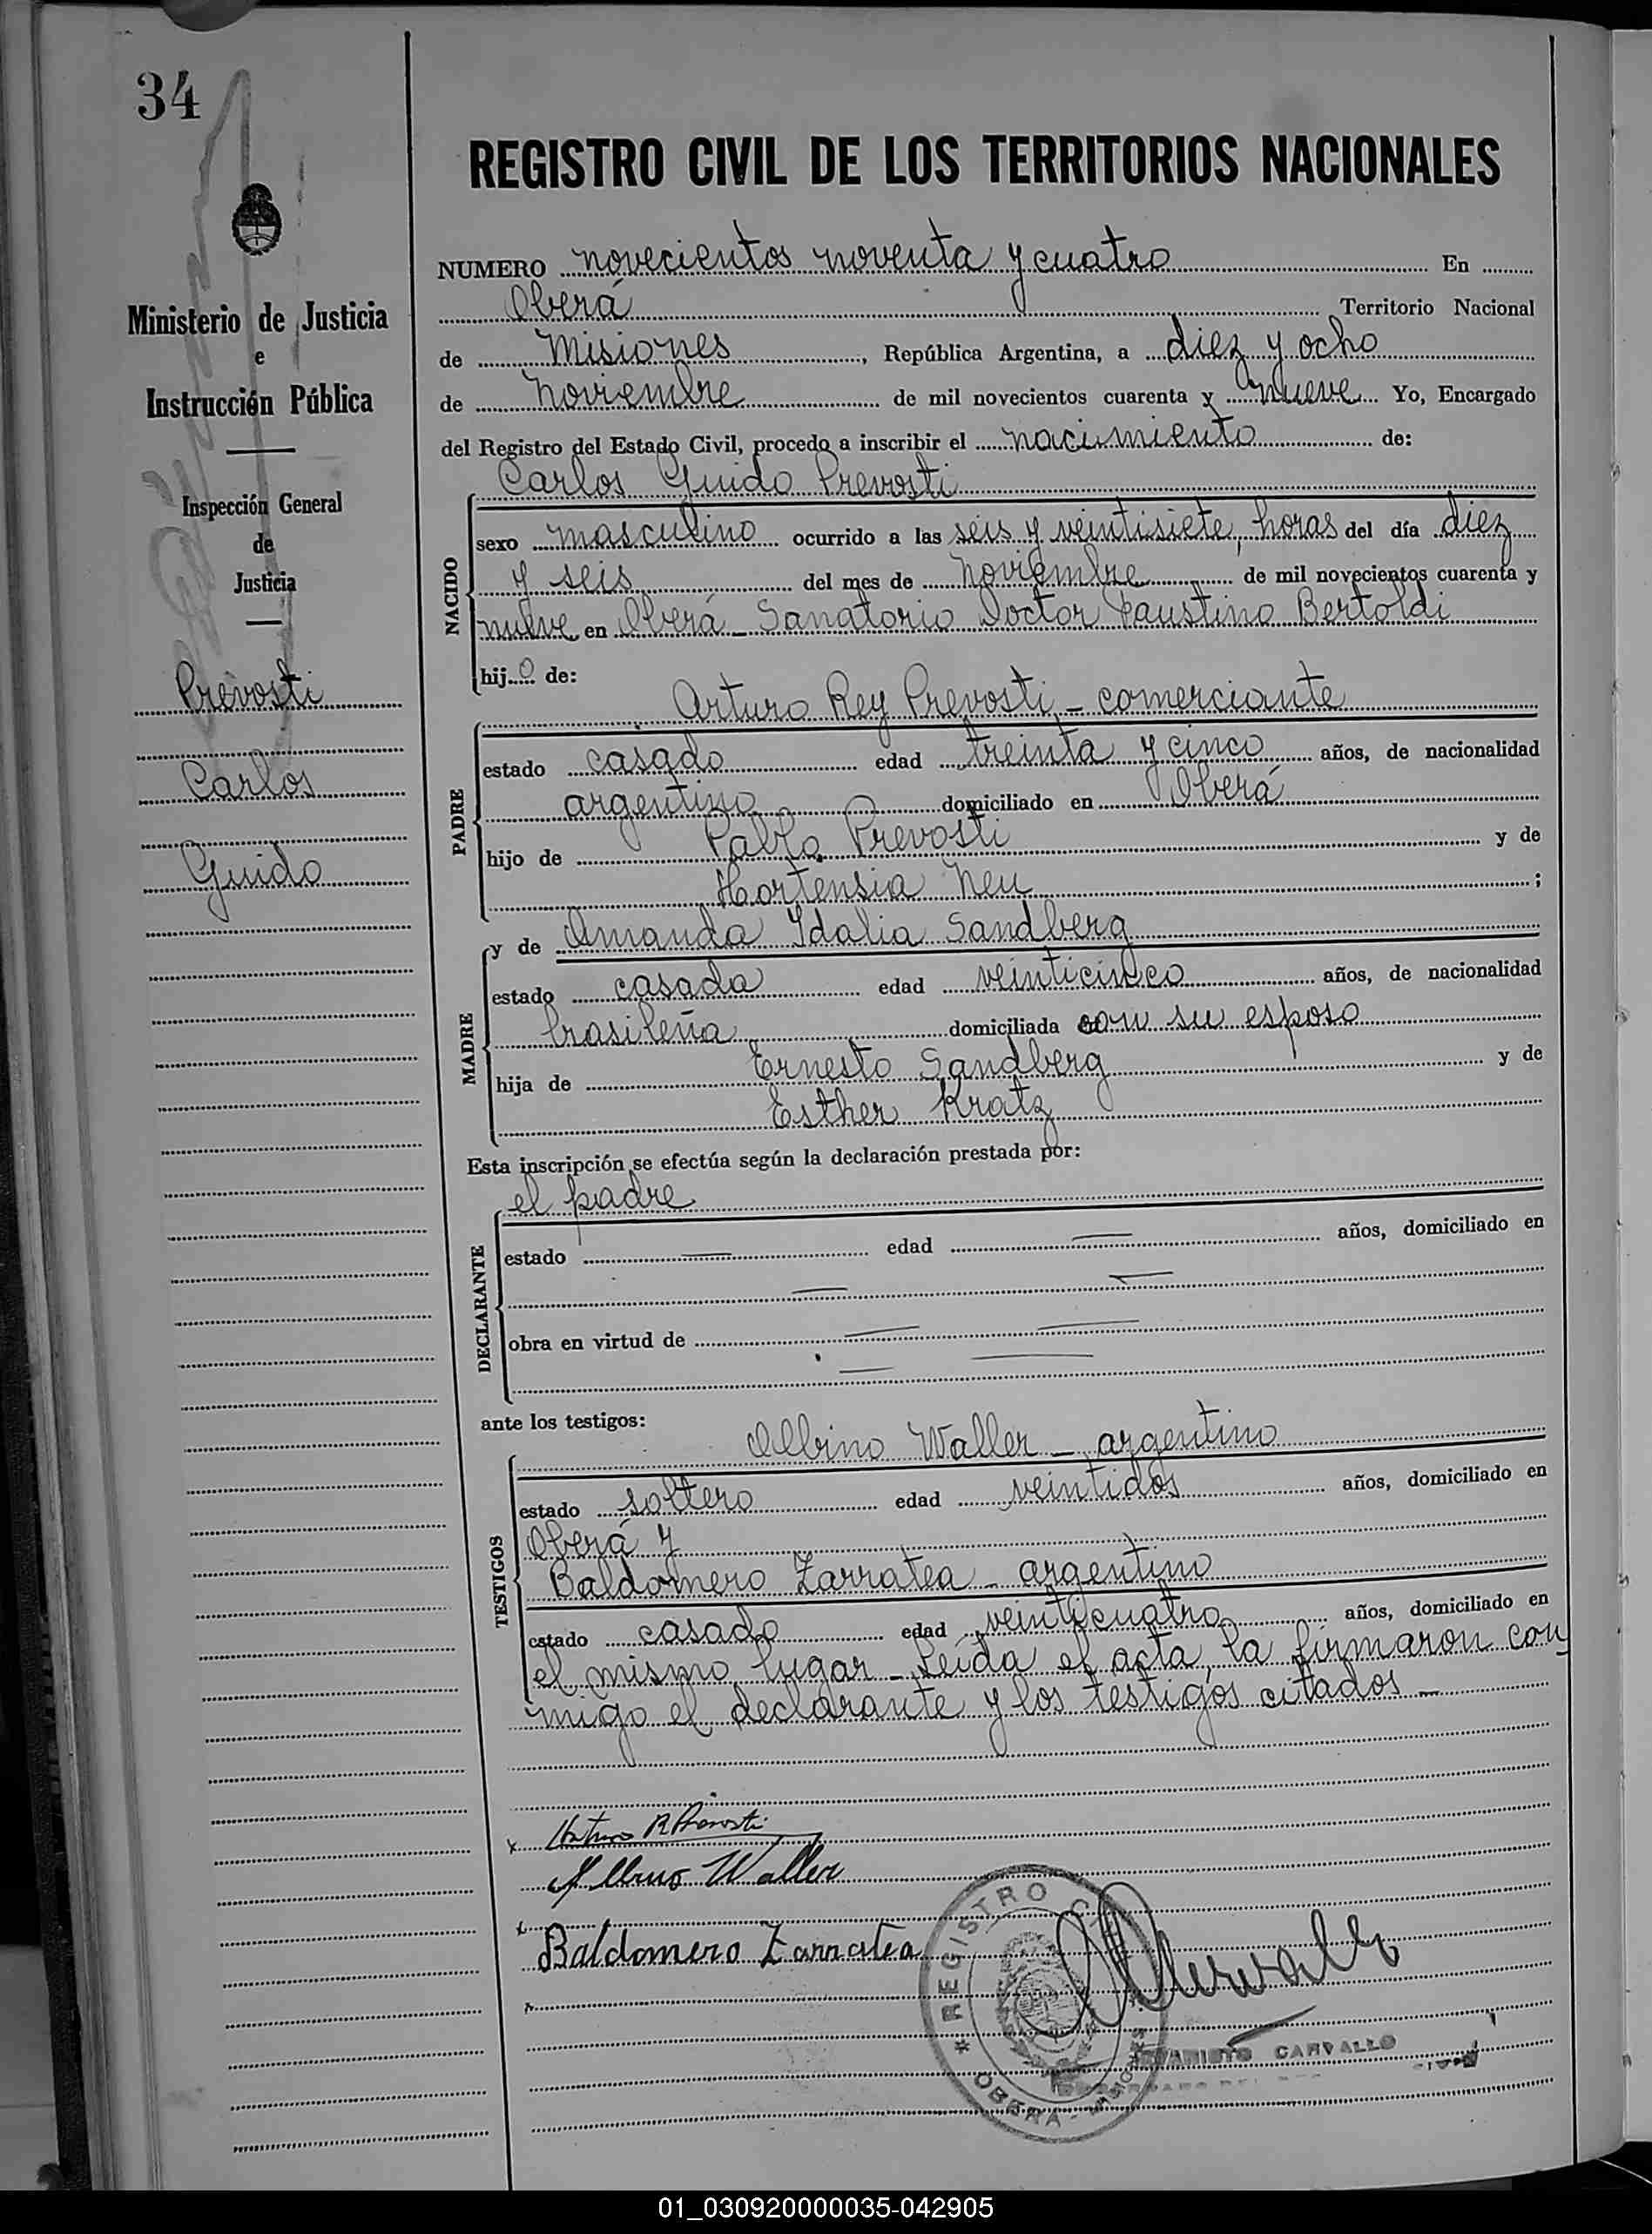 34
REGISTRO CIVIL DE LOS TERRITORIOS NACIONALES
Ministerio de Justicia
e
Instrucción Pública
Inspección General
de
Justicia
Prevosti
Carlos
Guido
NUMERO novecientos noventa y cuatro En
Oberá Territorio Nacional
de Misiones, República Argentina, a diez y ocho
de noviembre de mil novecientos cuarenta y nueve Yo, Encargado
del Registro del Estado Civil, procedo a inscribir el nacimiento de:
Carlos Guido Prevosti
NACIDO
sexo masculino ocurrido a las seis y veintisiete, horas del día diez
y seis del mes de noviembre de mil novecientos cuarenta y
nueve en Oberá - Sanatorio Doctor Faustino Bertoldi
hijo de:
Arturo Rey Prevosti - comerciante
PADRE
estado casado edad treinta y cinco años, de nacionalidad
argentino domiciliado en Oberá
hijo de Pablo Prevosti y de
Hortensia Neu ;
y de Amanda Idalia Sandberg
MADRE
estado casada edad veinticinco años, de nacionalidad
brasileña domiciliada con su esposo
hija de Ernesto Sandberg y de
Esther Kratz
Esta inscripción se efectúa según la declaración prestada por:
el padre
DECLARANTE
estado — edad — años, domiciliado en
— —
obra en virtud de — —
— —
ante los testigos:
Albino Waller - argentino
TESTIGOS
estado soltero edad veintidos años, domiciliado en
Oberá y
Baldomero Zarratea - argentino
estado casado edad veinticuatro años, domiciliado en
el mismo lugar - Leída el acta, la firmaron con
migo el declarante y los testigos citados -
x Arturo R Prevosti
Albino Waller
x
Baldomero Zarratea
* REGISTRO
OBERA - MISIONES
EVARISTO CARVALLO
01_030920000035-042905